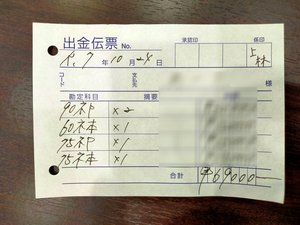 出金伝票 No.
承認印 係印
上林
R. 7年10月28日
コード 支払先 様
勘定科目 摘要
90ネP ×2
60ネ本 ×1
75ネP ×1
75ネ本 ×1
合計 ¥69000